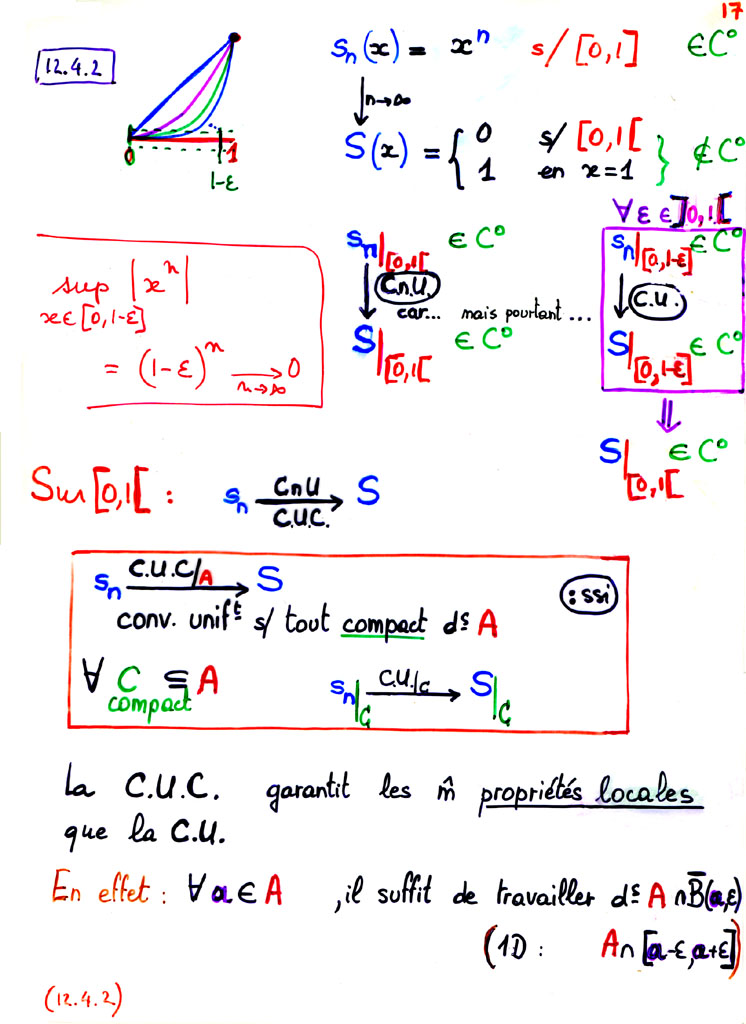 17
12.4.2
0 1
1-ε
sₙ(x) = xⁿ s/ [0,1] ∈ C⁰
n→∞
S(x) = { 0 s/ [0,1[
1 en x=1 } ∉ C⁰
∀ε ∈ ]0,1[
sₙ|[0,1[ ∈ C⁰
CnU.
car... mais pourtant ...
S|[0,1[ ∈ C⁰
sₙ|[0,1-ε] ∈ C⁰
C.U.
S|[0,1-ε] ∈ C⁰
⇓
S|[0,1[ ∈ C⁰
sup |xⁿ|
x∈[0,1-ε]
= (1-ε)ⁿ → 0
n→∞
Sur [0,1[ : sₙ CnU → S
C.U.C.
sₙ C.U.C/A → S
: ssi
conv. unifᵗ s/ tout compact dˢ A
∀ C ⊆ A sₙ|C C.U./C → S|C
compact
La C.U.C. garantit les m̂ propriétés locales
que la C.U.
En effet : ∀ a ∈ A , il suffit de travailler dˢ A ∩ B̅(a,ε)
(1D : A ∩ [a-ε, a+ε])
(12.4.2)